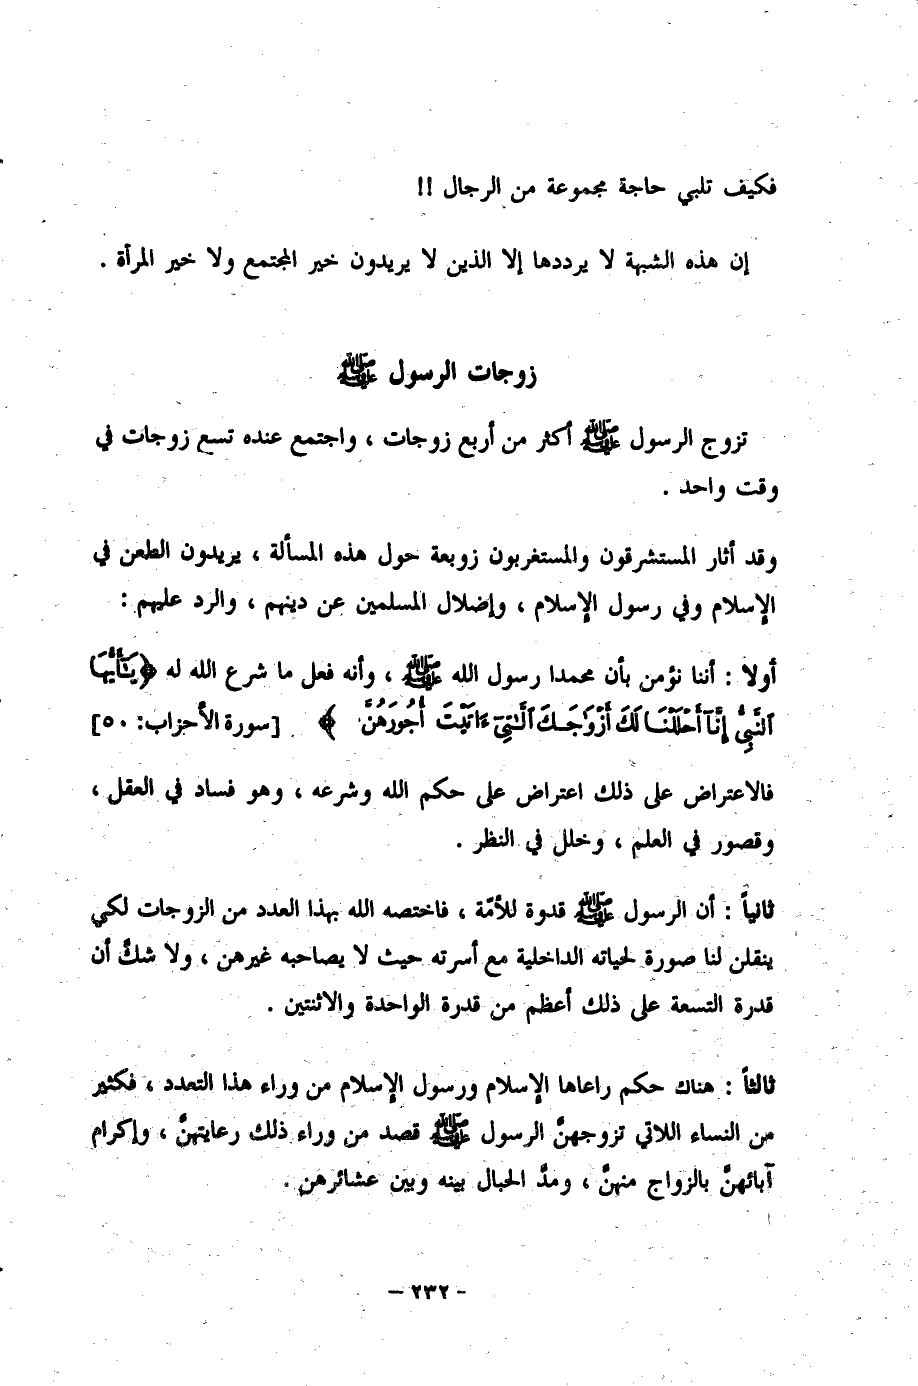 فكيف تلبي حاجة مجموعة من الرجال !!
إن هذه الشبهة لا يرددها إلا الذين لا يريدون خير المجتمع ولا خير المرأة .
زوجات الرسول ﷺ
تزوج الرسول ﷺ أكثر من أربع زوجات ، واجتمع عنده تسع زوجات في
وقت واحد .
وقد أثار المستشرقون والمستغربون زوبعة حول هذه المسألة ، يريدون الطعن في
الإسلام وفي رسول الإسلام ، وإضلال المسلمين عن دينهم ، والرد عليهم :
أولا : أننا نؤمن بأن محمدا رسول الله ﷺ ، وأنه فعل ما شرع الله له ﴿يَٰٓأَيُّهَا
ٱلنَّبِيُّ إِنَّآ أَحْلَلْنَا لَكَ أَزْوَٰجَكَ ٱلَّٰتِيٓ ءَاتَيْتَ أُجُورَهُنَّ ﴾ . [سورة الأحزاب: ٥٠]
فالاعتراض على ذلك اعتراض على حكم الله وشرعه ، وهو فساد في العقل ،
وقصور في العلم ، وخلل في النظر .
ثانياً : أن الرسول ﷺ قدوة للأمّة ، فاختصه الله بهذا العدد من الزوجات لكي
ينقلن لنا صورة لحياته الداخلية مع أسرته حيث لا يصاحبه غيرهن ، ولا شكَّ أن
قدرة التسعة على ذلك أعظم من قدرة الواحدة والاثنتين .
ثالثاً : هناك حكم راعاها الإسلام ورسول الإسلام من وراء هذا التعدد ، فكثير
من النساء اللاتي تزوجهنَّ الرسول ﷺ قصد من وراء ذلك رعايتهنَّ ، وإكرام
آبائهنَّ بالزواج منهنَّ ، ومدَّ الحبال بينه وبين عشائرهن .
- ٢٣٢ -